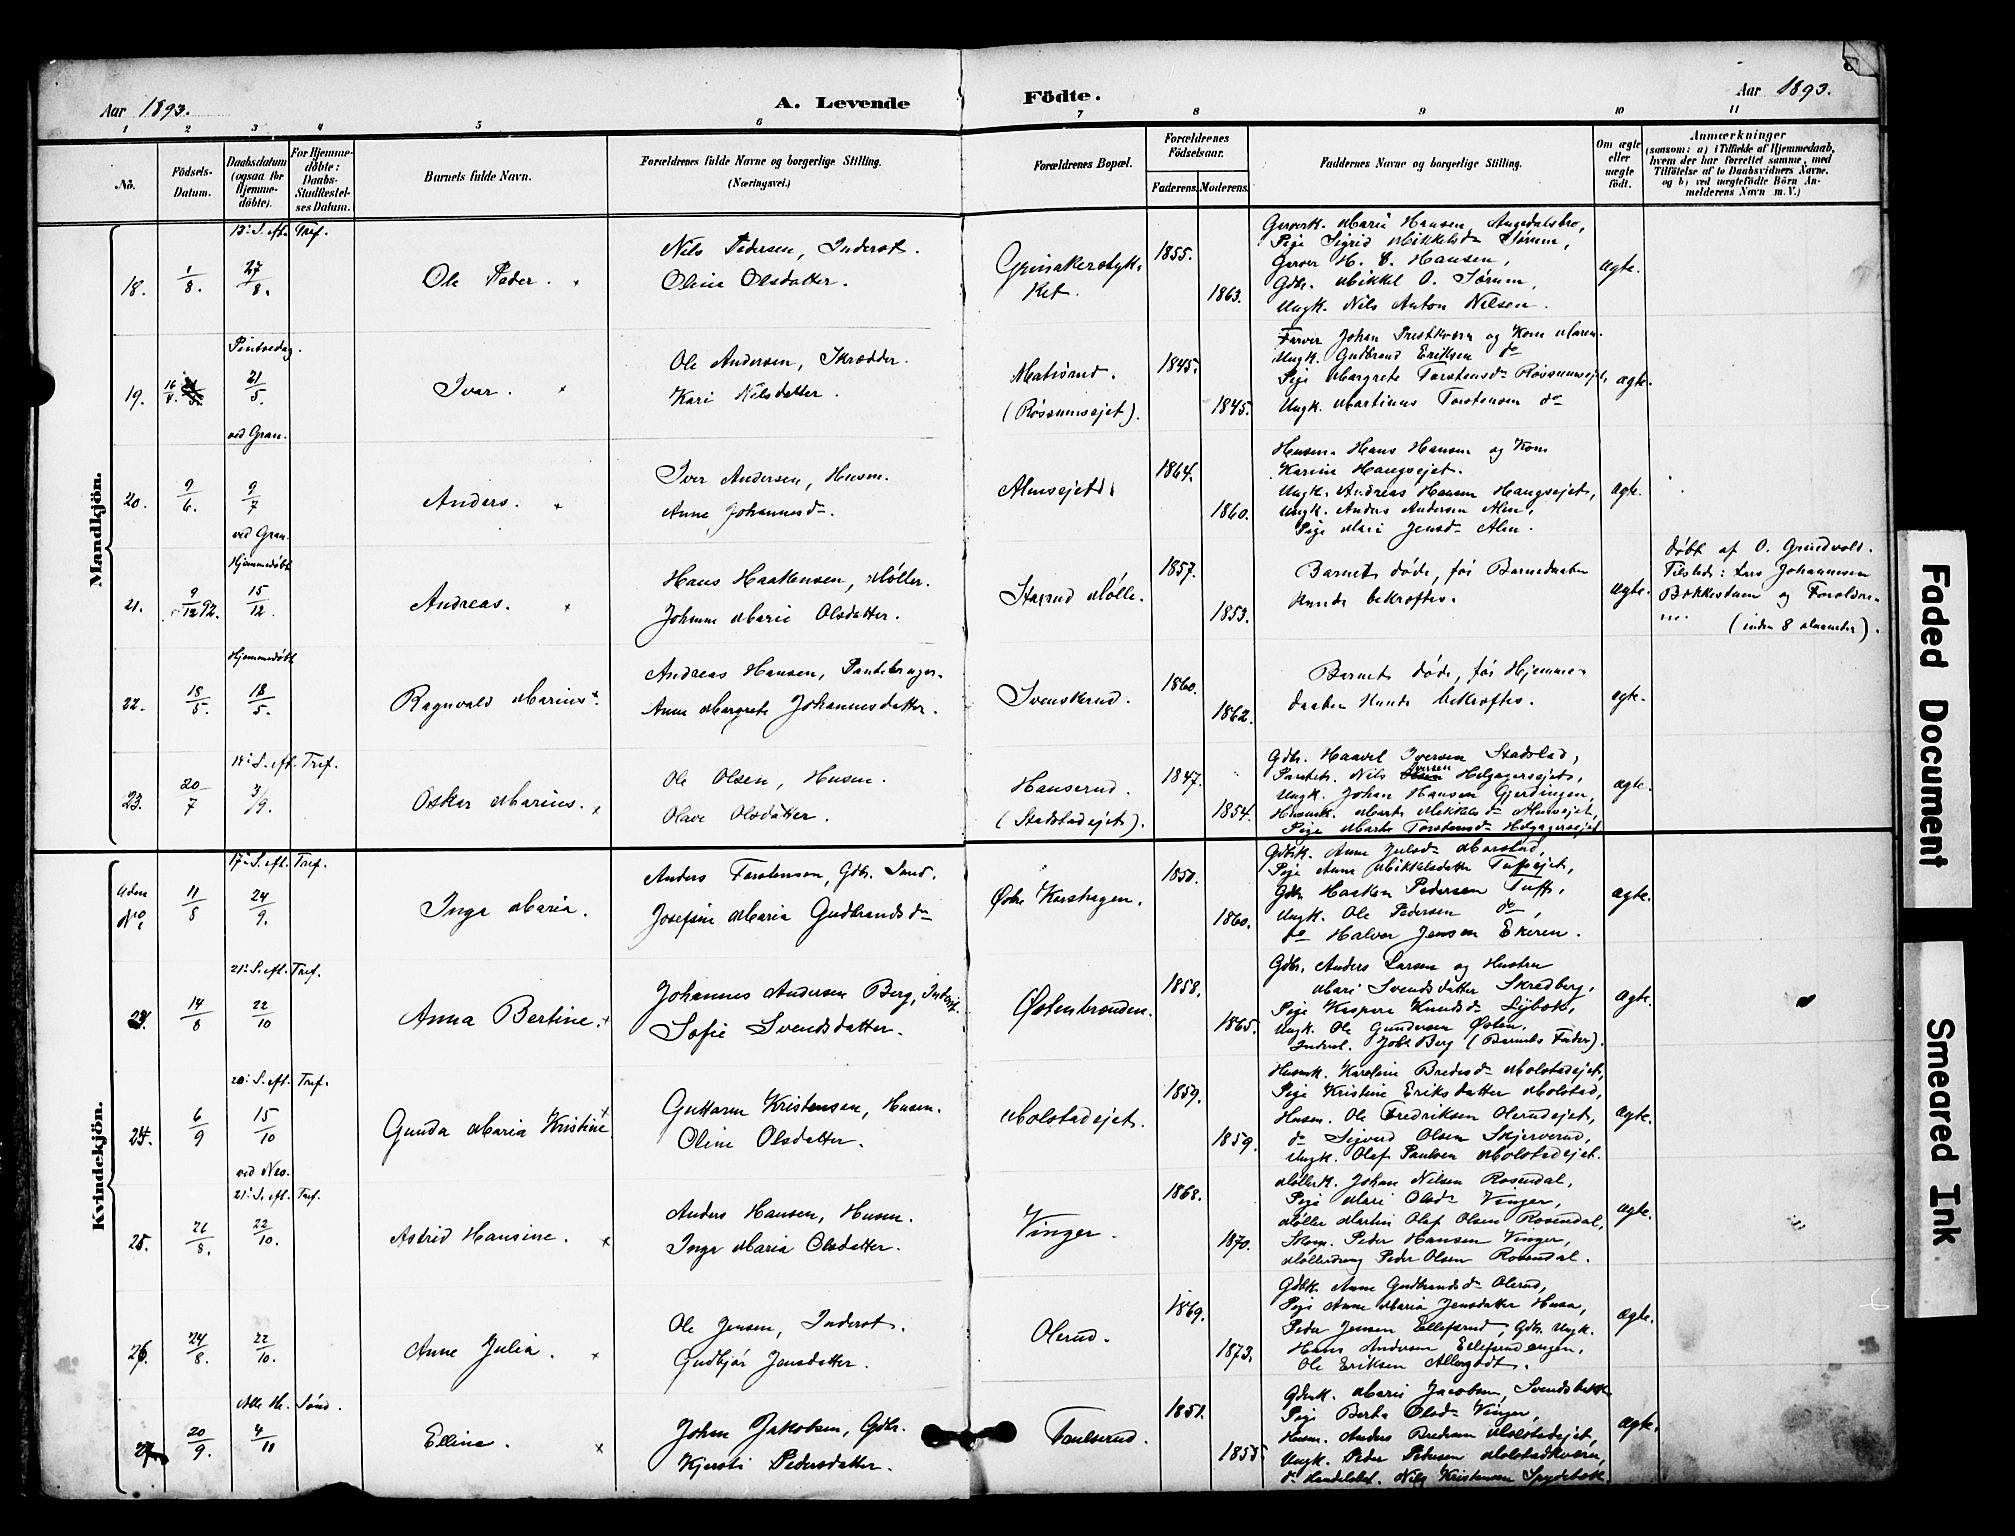 Aar 1893.
A. Levende Födte.
Aar 1893.
1 2 3 4 5 6 7 8 9 10 11
No.
Födsels-Datum.
Daabsdatum (ogsaa for Hjemmedöbte).
For Hjemmedöbte: Daabs-Stadfæstelses Datum.
Barnets fulde Navn.
Forældrenes fulde Navne og borgerlige Stilling.
(Næringsvei.)
Forældrenes Bopæl.
Forældrenes Födselsaar.
Faderens. Moderens.
Faddernes Navne og borgerlige Stilling.
Om ægte eller uægte födt.
Anmærkninger
(saasom: a) i Tilfælde af Hjemmedaab, hvem der har forrettet samme, med Tilföielse af to Daabsvidners Navne, og b) ved uægtefödte Börn Anmelderens Navn m. V.)
Mandkjön.
13. S. eft. Tref.
18. 1/8. 27/8.
Ole Peder.
Nils Pedersen, Inderst.
Oline Olsdatter.
Grinakerstykket.
1855.
1863.
Garverk. Marie Hansen Augedalsbro,
Pige Sigrid Mikkelsd. Sørum,
Garver H. C. Hansen,
Gdbr. Mikkel O. Sørum,
Ungk. Nils Anton Nilsen.
ægte.
Pintsedag.
19. 16/4. 21/5.
Ivar.
Ole Andersen, Skrædder.
Kari Nilsdatter.
(Røssumsejet).
1845.
1845.
Farver Johan Prestkværn og Kone Maren.
Ungk. Gudbrand Eriksen do
Pige Margrete Torstensd. Røssumsejet,
Ungk. Martinus Torstensen do
ægte.
ved Gran.
20. 9/6. 9/7
Anders.
Iver Andersen, Husm.
Anne Johannesd.
Almsejet.
1864.
1860.
Husm. Hans Hansen og Kone
Karine Haugsejet.
Ungk. Andreas Hansen Haugsejet,
Ungk. Anders Andersen Alm,
Pige Mari Jensd. Alm.
ægte.
ved Gran.
Hjemmedøbt
21. 9/12 92. 15/12.
Andreas.
Hans Haakensen, Møller.
Johanne Marie Olsdatter.
Møllе.
1857.
1853.
Barnet døde, før Barnedaaben
kunde bekræftes.
ægte.
Døbt af O. Grindvold.
Tilstede: Lars Johannesen
og Forældrene.
(inden 8 Maaneder).
Hjemmedøbt
22. 18/5. 18/5.
Ragnvald Marius.
Andreas Hansen, Pantebruger.
Anne Margrete Johannesdatter.
Svenskerud.
1860.
1862.
Barnet døde, før Hjemmedaaben
kunde bekræftes.
ægte.
14. S. eft. Tref.
23. 20/7 3/9.
Oskar Marius.
Ole Olsen, Husm.
Olave Olsdatter.
Hanserud.
(Stadstadejet).
1847.
1854.
Gdbr. Haavel Iversen Stadstad,
Nils Iversen Helgagersejet,
Ungk. Johan Hansen Gjerdingen,
Husmk. Marte Mikkelsd. Almsejet,
Pige Marte Torstensd. Helgagersejet
ægte.
Kvindekjön.
17. S. eft. Tref.
Uden No. 11/8 24/9.
Inga Maria.
Anders Torstensen, Gdbr. Sand.
Josefine Maria Gudbrandsd.
Østre Korshagen.
1850.
1860.
Gdbrk. Anne Julsd.
Pige Anne Mikkelsdatter Tuftsejet,
Gdbr. Haaken Pedersen Tufte,
Ungk. Ole Pedersen do,
do Halvor Jensen Ekeren.
ægte.
21. S. eft. Tref.
23. 14/8 22/10
Anna Bertine.
Johannes Andersen Berg, Inderst.
Sofie Svendsdatter.
Østenbraaden.
1858.
1865.
Gdbr. Anders Larsen og Hustru
Mari Svendsdatter Skredberg,
Pige Kaspara Knudsd.
Ungk. Ole Gundersen Østen,
Inderst. Johs. Berg (Barnets Fader).
ægte.
20. S. eft. Tref.
24. 6/9 15/10
Gunda Maria Kristine
Guttorm Kristensen, Husm.
Oline Olsdatter.
Molstadejet.
1859.
1859.
Husmk. Karoline Bredesd. Molstadejet,
Pige Kristine Eriksdatter Molstad,
Husm. Ole Fredriksen Olerudsejet,
do Sigvard Olsen Skjerverud,
Ungk. Olaf Paulsen Molstadejet.
ægte.
ved Nes.
21. S. eft. Tref.
25. 21/8. 22/10.
Astrid Hansine.
Anders Hansen, Husm.
Inga Maria Olsdatter.
Vinger.
1868.
1870.
Møllerk. Johan Nilsen Rosendal,
Pige Mari Olsd. Vinger,
Møller Martin Olaf Olsen Rosendal,
Skom. Peder Hansen Vinger,
Møllerdreng Peder Olsen Rosendal.
ægte.
26. 24/8. 22/10.
Anne Julia.
Ole Jensen, Inderst.
Gudbjør Jensdatter.
Olerud.
1869.
1873.
Gdbk. Anne Gudbrandsd. Olerud,
Pige Anne Maria Jensdatter Husa,
Peder Jensen Ellefsrud, Gdbr. Ungk.
Hans Andersen Ellefsrudengen,
Ole Eriksen
ægte.
Alle He. Sønd.
27. 20/9. 4/11
Elline.
Johan Jakobsen, Gdbr.
Kjersti Pedersdatter.
Paulserud.
1851.
1855.
Gdbrk. Marie Jacobsen,
Pige Berta Olsd. Vinger,
Husm. Anders Bredesen Molstadejet,
Ungk. Peder Pedersen Molstadkværn,
do Handelsbet. Nils Kristensen
ægte.
Faded Document
Smeared Ink